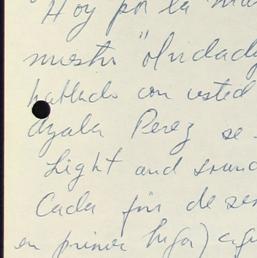 "Hoy por la ma
nuestro "olvidado
hablado con usted
Ayala Perez se
Light and sound
Cada fin de se
en primer lugar) aqu